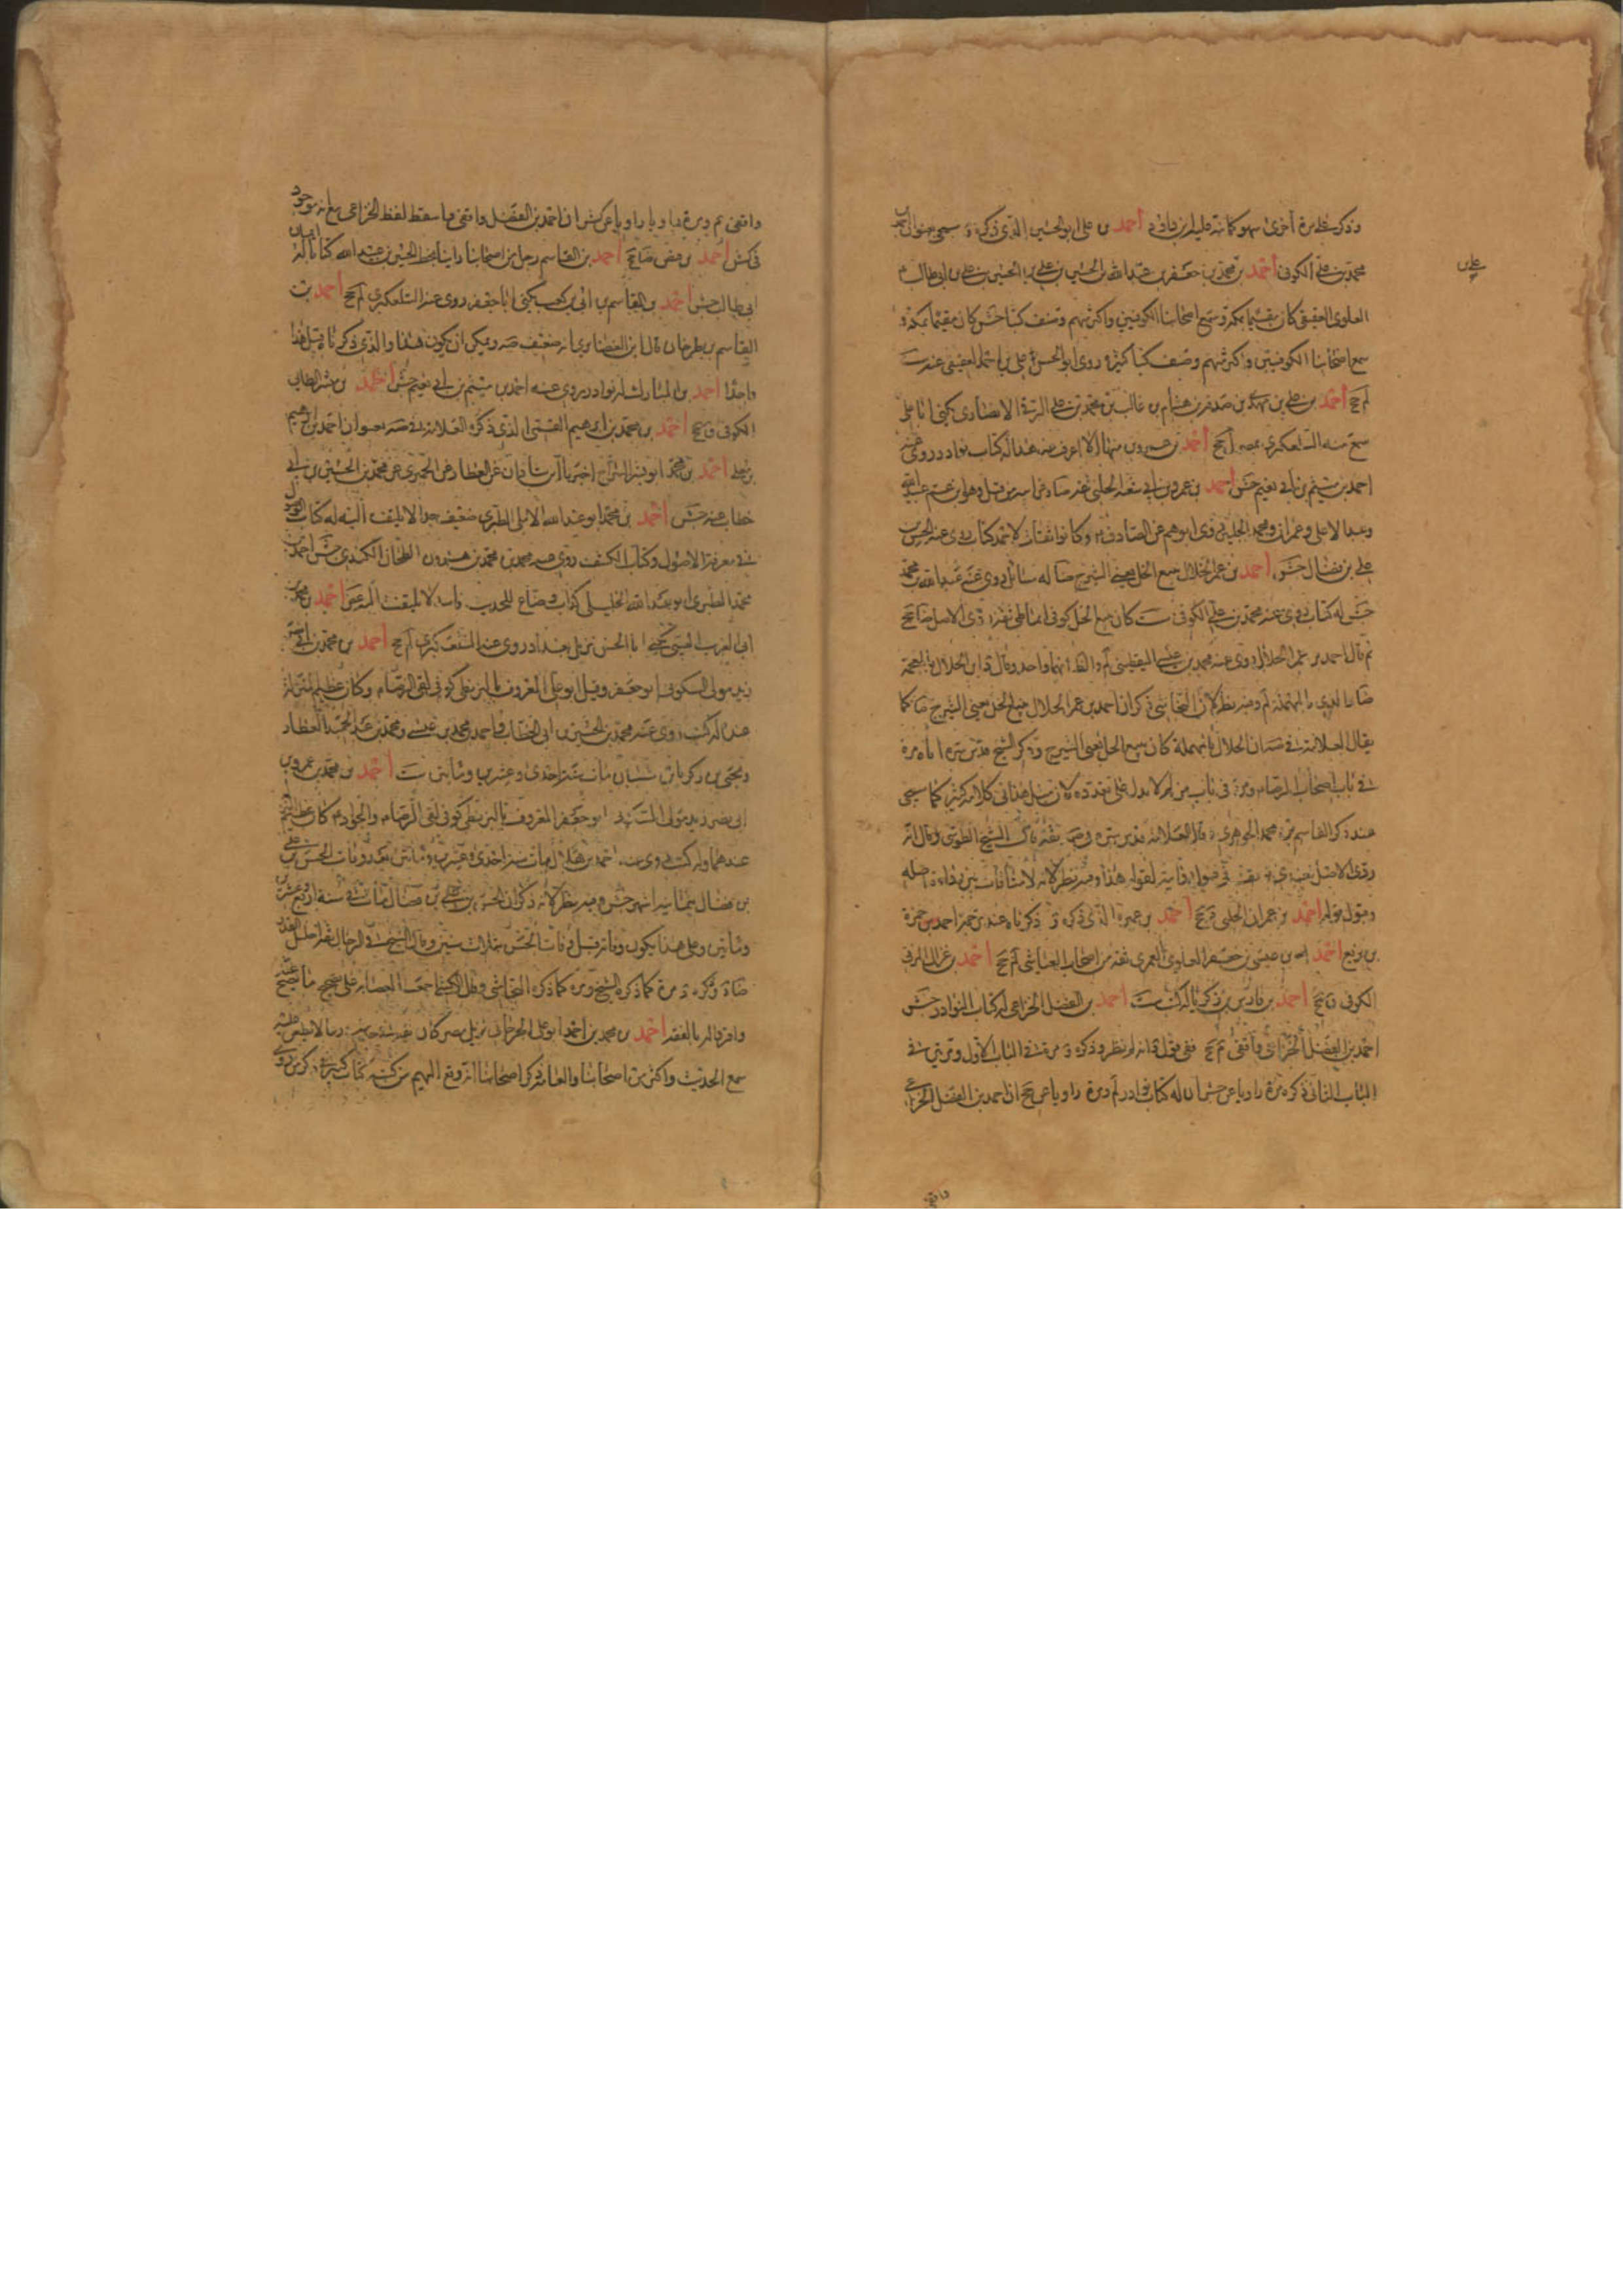 وذكر مرة أخرى أحمد بن علي أبو الحسين الذي ذكره
محمد بن علي الكوفي أحمد بن محمد بن جعفر بن عبد الله بن الحسين بن علي بن الحسين بن علي بن أبي طالب
علي بن
العلوي العقيقي كان مقيما بمكة وسمع أصحابنا الكوفيين وأكثر منهم وصنف كتبا جش كان مقيما بمكة و
سمع أصحابنا الكوفيين وأكثر منهم وصنف كتبا كثيرة روى أبو الحسن علي بن أحمد العقيقي عنه ست
لم جخ أحمد بن علي بن مهدي بن صدقة بن هشام بن غالب بن محمد بن علي الرقي الأنصاري يكنى أبا علي
سمع منه التلعكبري بمصر لم جخ أحمد بن عمرو بن منهال لا أعرف غير هذا له كتاب نوادر روى عنه
أحمد بن ميثم بن أبي نعيم جش أحمد بن عمرو بن أبي شعبة الحلبي ثقة وهو ابن عم عبيد الله
وعبد الأعلى وعمران ومحمد الحلبيين روى أبوهم عن الصادق وكانوا ثقات لأحمد كتاب روى عنه الحسن بن
علي بن فضال جش أحمد بن عمر الحلال يبيع الحل يعني الشيرج له مسائل روى عنه عبد الله بن محمد
جش له كتاب روى عنه محمد بن علي الكوفي ست كان يبيع الحل كوفي أنماطي ثقة ردي الأصل ضا جخ
ثم قال أحمد بن عمر الحلال روى عنه محمد بن عيسى اليقطيني لم والظ أنهما واحد وقال د ابن الخلال بالمعجمة
لأن النجاشي ذكر أن أحمد بن عمر الحلال يبيع الحل يعني الشيرج
يقال العلامة في صه أن الحلال بالمهملة كان يبيع الحل يعني الشيرج وذكر الشيخ قدس سره إياه مرة
في باب أصحاب الرضا ومرة في باب من لم لا يدل على تعدده لأن مثل هذا في كلامه كثير كما سيجيء
عند ذكر القاسم بن محمد الجوهري قال العلامة قدس سره في صه ثقة قال الشيخ الطوسي وقال انه
أحمد بن عمران الحلبي ق جخ أحمد بن عميرة الذي ذكره ذكرناه عند بن حمزة أحمد بن حمزة
بن بزيع أحمد بن عيسى بن جعفر العلوي العمري ثقة من أصحاب العياشي لم جخ أحمد بن غزال المزني
الكوفي ق جخ أحمد بن فارس بن زكريا له كتب ست أحمد بن الفضل الخزاعي له كتاب النوادر جش
أحمد بن الفضل الخزاعي واقفي م جخ ففي قول د انه لم نظر وذكره د مرة في الباب الأول ومرتين في
الباب الثاني ذكره مرة راويا عن جش أن له كتاب نوادر لم ومرة راويا عن جخ أن أحمد بن الفضل الخزاعي
واقفي
واقفي م ومرة راويا عن كش أن أحمد بن الفضل واقفي فأسقط لفظ الخزاعي مع أنه موجود
في كش أحمد بن فيض ضا جخ أحمد بن القاسم رجل من أصحابنا رأينا بخط الحسين بن عبيد الله كتابا له إيمان
أبي طالب جش أحمد بن القاسم بن أبي بن كعب يكنى أبا جعفر روى عنه التلعكبري لم جخ أحمد بن
القاسم بن طرخان قال ابن الغضايري انه ضعيف صه ويمكن أن يكون هذا والذي ذكرنا قبل هذا
واحدا أحمد بن المبارك له نوادر روى عنه أحمد بن ميثم بن أبي نعيم جش أحمد بن مبشر الطائي
الكوفي ق جخ أحمد بن محمد بن إبراهيم القمي الذي ذكره العلامة في صه هو ابن أحمد بن إبراهيم
بن علي أحمد بن محمد أبو بشر السراج أخبرنا ابن شاذان عن العطار عن الحميري عن محمد بن الحسين بن أبي
خطاب عنه جش أحمد بن محمد أبو عبد الله الآملي الطبري ضعيف جدا لا يلتفت إليه له كتاب الوصول
في معرفة الأصول وكتاب الكشف روى عنه محمد بن محمد بن هيرون الطحان الكندي جش أحمد بن
محمد الطبري أبو عبد الله الخليلي كذاب وضاع للحديث فاسد لا يلتفت إليه غض أحمد بن محمد بن
أبي الغريب الضبي يكنى أبا الحسن نزيل بغداد روى عنه التلعكبري لم جخ أحمد بن محمد بن أبي نصر
زيد مولى السكوني أبو جعفر وقيل أبو علي المعروف بالبزنطي كوفي لقي الرضا وكان عظيم المنزلة
عنده له كتب روى عنه محمد بن الحسين بن أبي الخطاب وأحمد بن محمد بن عيسى ومحمد بن عبد الحميد العطار
ويحيى بن زكريا بن شيبان مات سنة إحدى وعشرين ومأتين ست أحمد بن محمد بن عمرو بن
أبي نصر زيد مولى السكون أبو جعفر المعروف بالبزنطي كوفي لقي الرضا والجواد وكان عظيم المنزلة
عندهما وله كتب روى عنه أحمد بن هلال مات سنة إحدى وعشرين ومأتين بعد وفات الحسن بن علي
بن فضال بثمانية أشهر جش وفيه نظر لأنه ذكر أن الحسن بن علي بن فضال مات في سنة أربع وعشرين
ومأتين وعلى هذا يكون وفاته قبل وفات الحسن بثلاث سنين وقال الشيخ في الرجال ثقة جليل القدر
وذكره د مرة كما ذكره الشيخ ومرة كما ذكره النجاشي ونقل الكشي أجمعت العصابة على تصحيح ما يصح عنه
وأقروا له بالفقه أحمد بن محمد بن أحمد أبو علي الجرجاني نزيل مصر كان ثقة في حديثه ورعا لا يطعن عليه
سمع الحديث وأكثر من أصحابنا والعامة ذكر أصحابنا أنه وقع إليهم من كتبه كتاب كبير في ذكر من روى